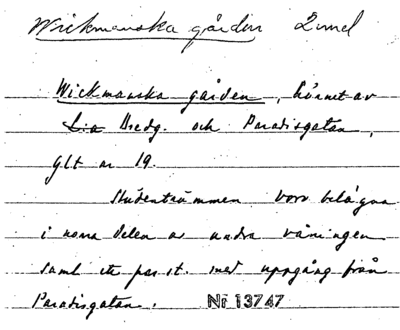 Wickmanska gården 2 med
Wickmanska gården, hörnet av
L:a Bredg. och Paradisgatan,
glt nr 19.
Studentrummen voro belägna
i norra delen av andra våningen
samt ett par st. med uppgång från
Paradisgatan. Nr 13747